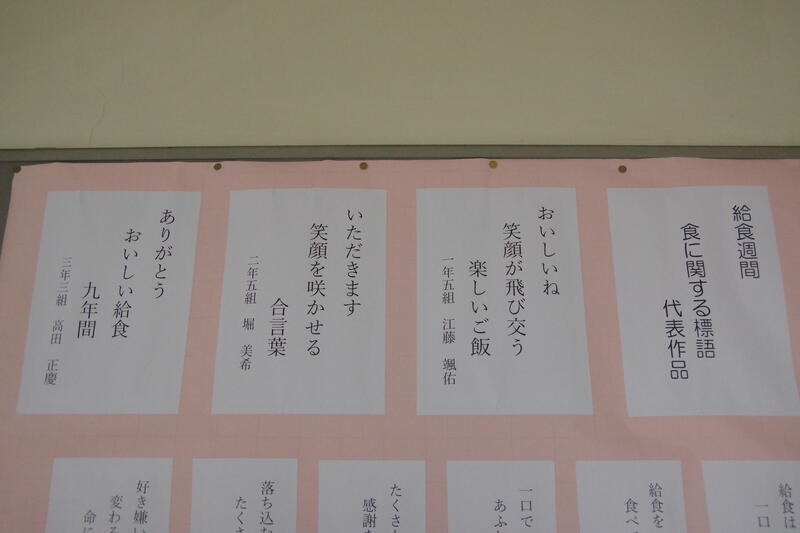 給食週間
食に関する標語
代表作品
おいしいね
笑顔が飛び交う
楽しいご飯
一年五組 江藤 颯佑
いただきます
笑顔を咲かせる
合言葉
二年五組 堀 美希
ありがとう
おいしい給食
九年間
三年三組 高田 正慶
給食は
一口
給食を
食べ
一口で
あふ
たくさ
感謝
落ち込
たくさ
好き嫌い
変わる
命に